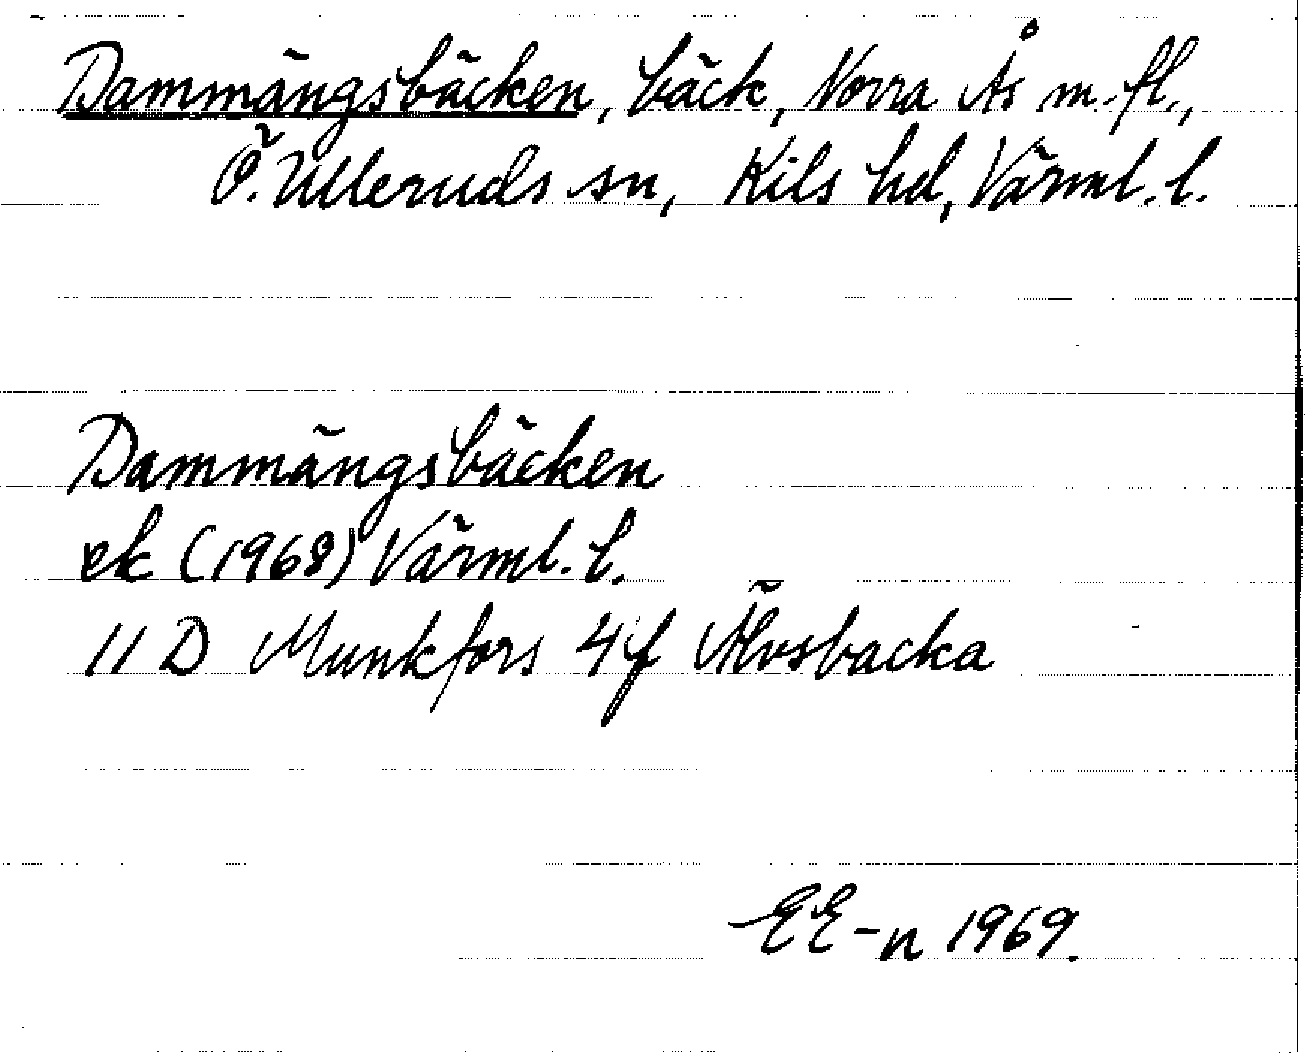 Dammängsbäcken, bäck, Norra Ås m.fl.,
Ö. Ulleruds sn, Kils hd, Värml. l.
Dammängsbäcken
ek (1968) Värml. l.
11 D Munkfors 4f Älvsbacka
EE-n 1969.